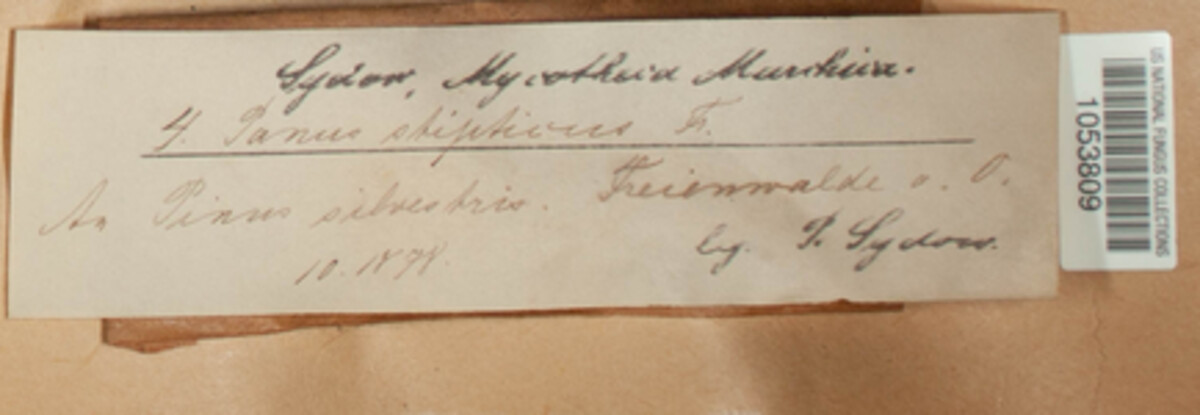 Sydow, Mycotheca Marchica.
4. Panus stipticus F.
An Pinus silvestris. Freienwalde a. O.
10. 1898. leg. P. Sydow.
US NATIONAL FUNGUS COLLECTIONS
1053809